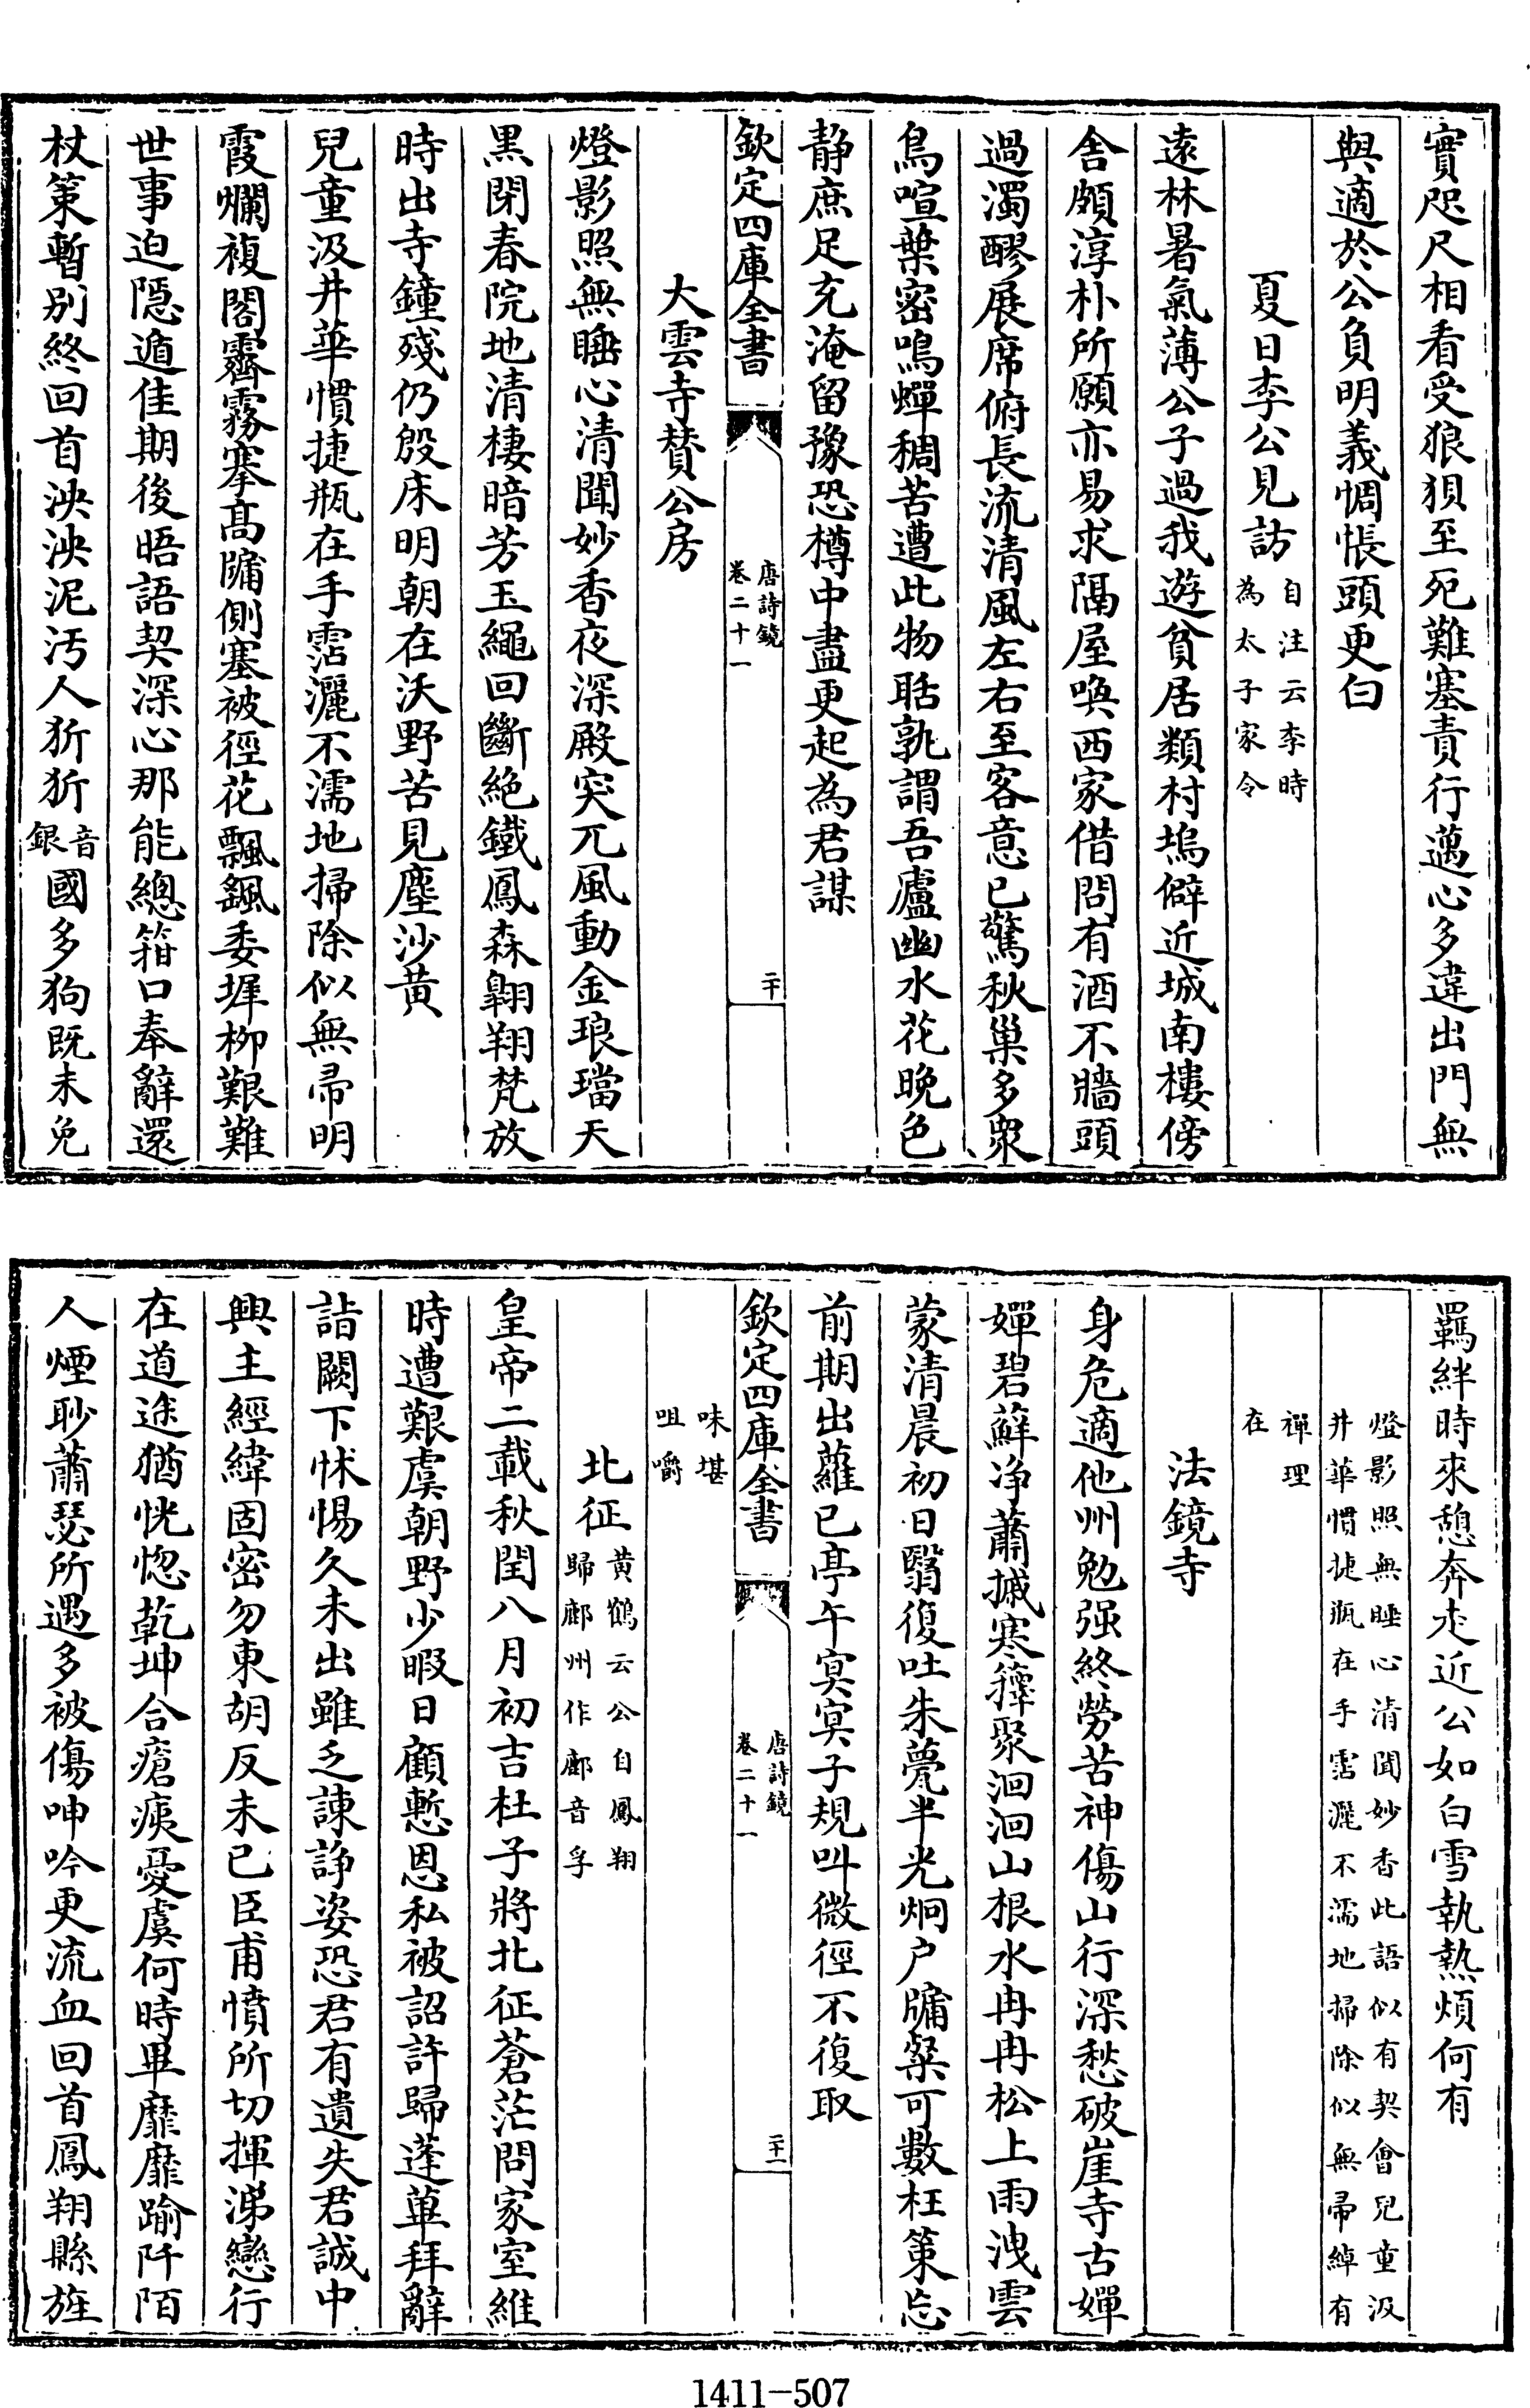 實咫尺相看受狼狽至死難塞責行邁心多違出門無
與適於公負明義惆悵頭更白
夏日李公見訪自注云李時為太子家令
遠林暑氣薄公子過我遊貧居類村塢僻近城南樓傍
舍頗淳朴所願亦易求隔屋喚西家借問有酒不牆頭
過濁醪展席俯長流清風左右至客意已驚秋巢多衆
鳥喧葉密鳴蟬稠苦遭此物聒孰謂吾廬幽水花晚色
静庶足充淹留豫恐樽中盡更起為君謀
欽定四庫全書 唐詩鏡卷二十一 二十
大雲寺賛公房
燈影照無睡心清聞妙香夜深殿突兀風動金琅璫天
黒閉春院地清棲暗芳玉繩回斷絶鐵鳳森翺翔梵放
時出寺鐘殘仍殷床明朝在沃野苦見塵沙黄
兒童汲井華慣捷瓶在手霑灑不濡地掃除似無帚明
霞爛複閣霽霧搴髙牖側塞被徑花飄颻委墀柳艱難
世事迫隱遁佳期後晤語契深心那能總箝口奉辭還
杖策暫别終回首泱泱泥汚人狺狺音銀國多狗既未免
羈絆時來憩奔走近公如白雪執熱煩何有
燈影照無睡心清聞妙香此語似有契會兒童汲
井華慣捷瓶在手霑灑不濡地掃除似無帚綽有
禪理
在
法鏡寺
身危適他州勉强終勞苦神傷山行深愁破崖寺古嬋
嬋碧蘚浄蕭摵寒籜聚洄洄山根水冉冉松上雨洩雲
蒙清晨初日翳復吐朱甍半光烱户牖粲可數枉策忘
前期出蘿已亭午冥冥子規叫微徑不復取
欽定四庫全書 唐詩鏡卷二十一 二十一
味堪
咀嚼
北征黄鶴云公自鳳翔歸鄜州作鄜音孚
皇帝二載秋閏八月初吉杜子將北征蒼茫問家室維
時遭艱虞朝野少暇日顧慙恩私被詔許歸蓬蓽拜辭
詣闕下怵惕久未出雖乏諫諍姿恐君有遺失君誠中
興主經緯固密勿東胡反未已臣甫憤所切揮涕戀行
在道途猶恍惚乾坤含瘡痍憂虞何時畢靡靡踰阡陌
人煙眇蕭瑟所遇多被傷呻吟更流血回首鳳翔縣旌
1411-507